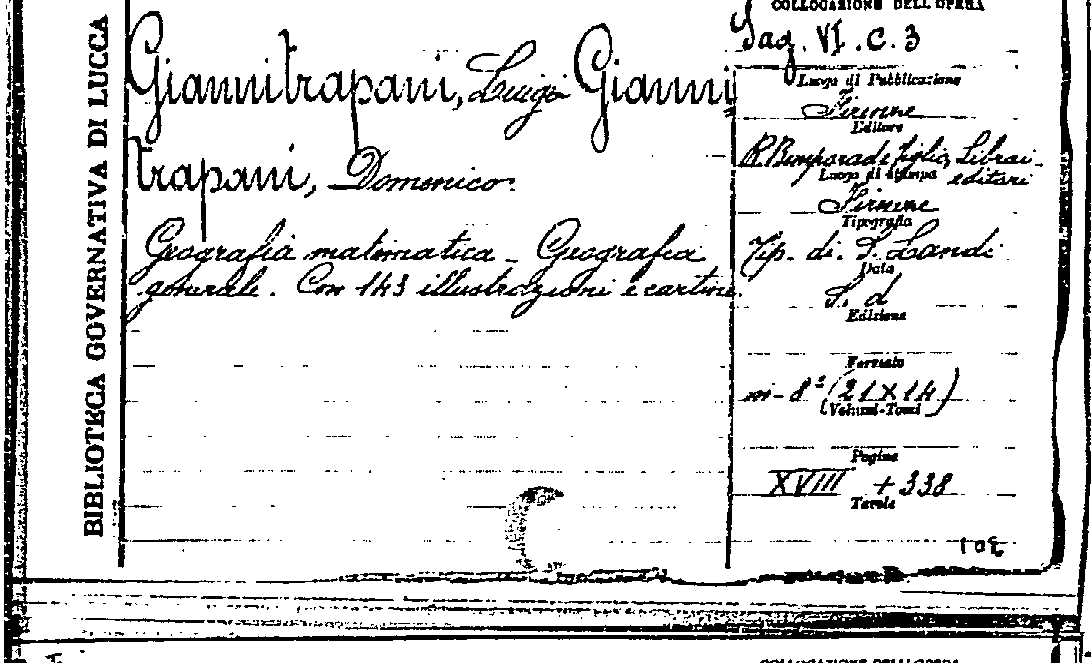 BIBLIOTECA GOVERNATIVA DI LUCCA
Giannitrapani, Luigi Gianni
trapani, Domenico.
Geografia matematica - Geografia
generale. Con 143 illustrazioni e cartine.
COLLOCAZIONE DELL'OPERA
VI. C. 3
Luogo di Pubblicazione
Firenze
Editore
R. Bemporad e figlio, Librai-
editori
Luogo di stampa
Firenze
Tipografia
Tip. di. S. Landi
Data
S. d
Edizione
Formato
in-8° (21 X 14)
(Volumi-Tomi)
Pagine
XVIII + 338
Tavole
COLLOCAZIONE DELL'OPERA